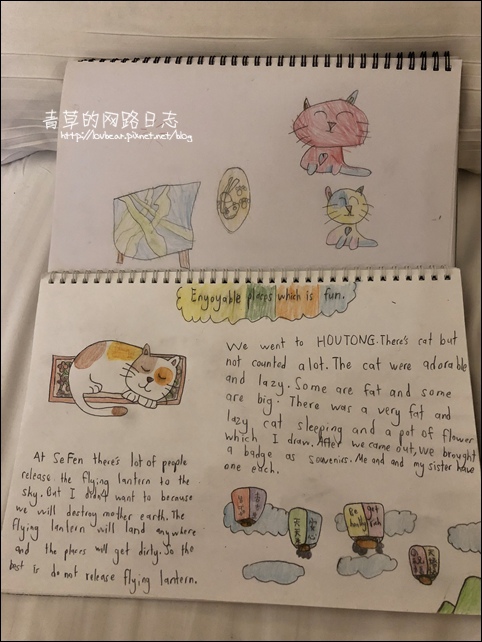 青草的网路日志
http://loubean.pixnet.net/blog
Enjoyable places which is fun.
We went to HOUTONG. There's cat but
not counted a lot. The cat were adorable
and lazy. Some are fat and some
are big. There was a very fat and
lazy cat sleeping and a pot of flower
which I draw. After we came out, we brought
a badge as souvenirs. Me and and my sister have
one each.
At SeFen there's lot of people
release the flying lantern to the
shy. But I didn't want to because
we will destroy mother earth. The
flying lantern will land anywhere
and the places will get dirty. So the
best is do not release flying lantern.
Be healthy
get rich